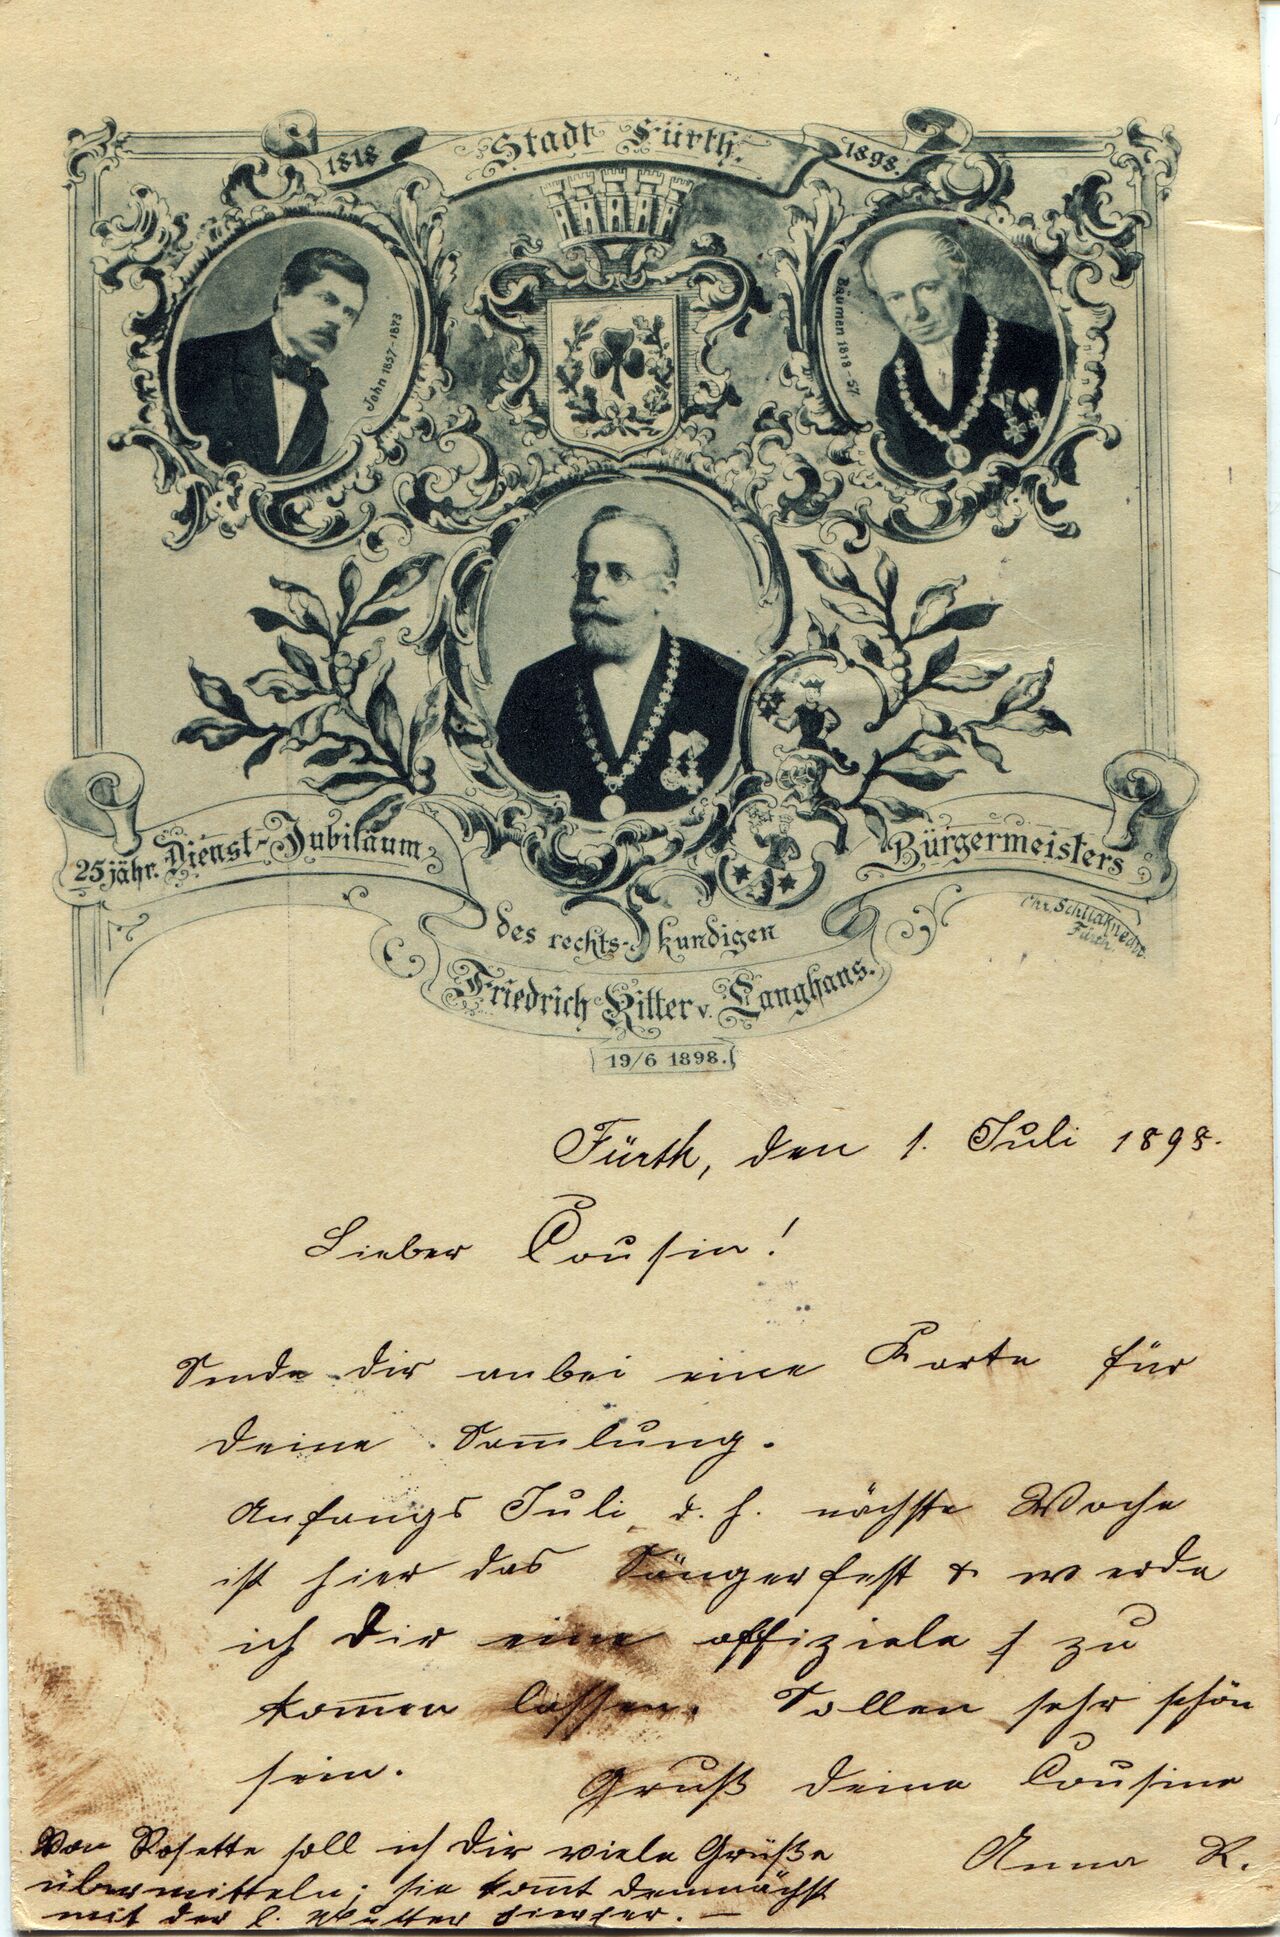 1818 Stadt Fürth. 1898.
John 1857-1873
Bäumen 1818-57
25 jähr. Dienst-Jubiläum
des rechts-kundigen
Bürgermeisters
Friedrich Ritter v. Langhans.
19/6 1898.
Fürth, den 1. Juli 1898.
Lieber Cousin!
Sende dir anbei eine Karte für
deine Sam̅lung.
Anfangs Juli, d. h. nächste Woche
ist hier das Sängerfest & werde
ich Dir eine offiziele zu
kom̅en lassen. Sollen sehr schön
sein. Gruß deine Cousine
Anna R.
Von Rosette soll ich dir viele Grüße
übermitteln; sie kom̅t demnächst
mit der l. Mutter hierher. —